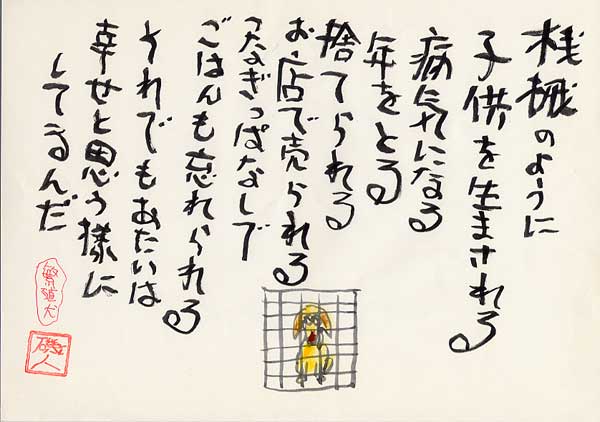 機械のように
子供を生まされる
病気になる
年をとる
捨てられる
お店で売られる
つなぎっぱなしで
ごはんも忘れられる
それでもあたいは
幸せと思う様に
してるんだ
繁殖犬
磯人